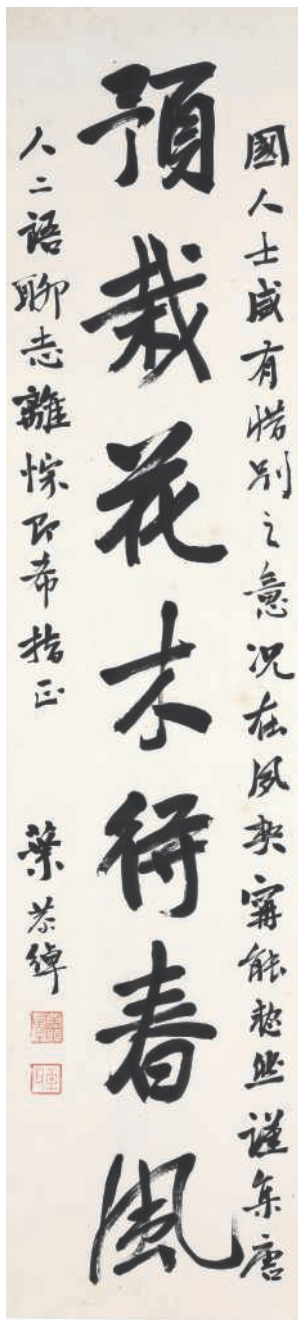 國人士咸有惜別之意況在夙契寗能恝然謹集唐
預栽花木待春風
人二語聊志離悰即希指正
葉恭綽